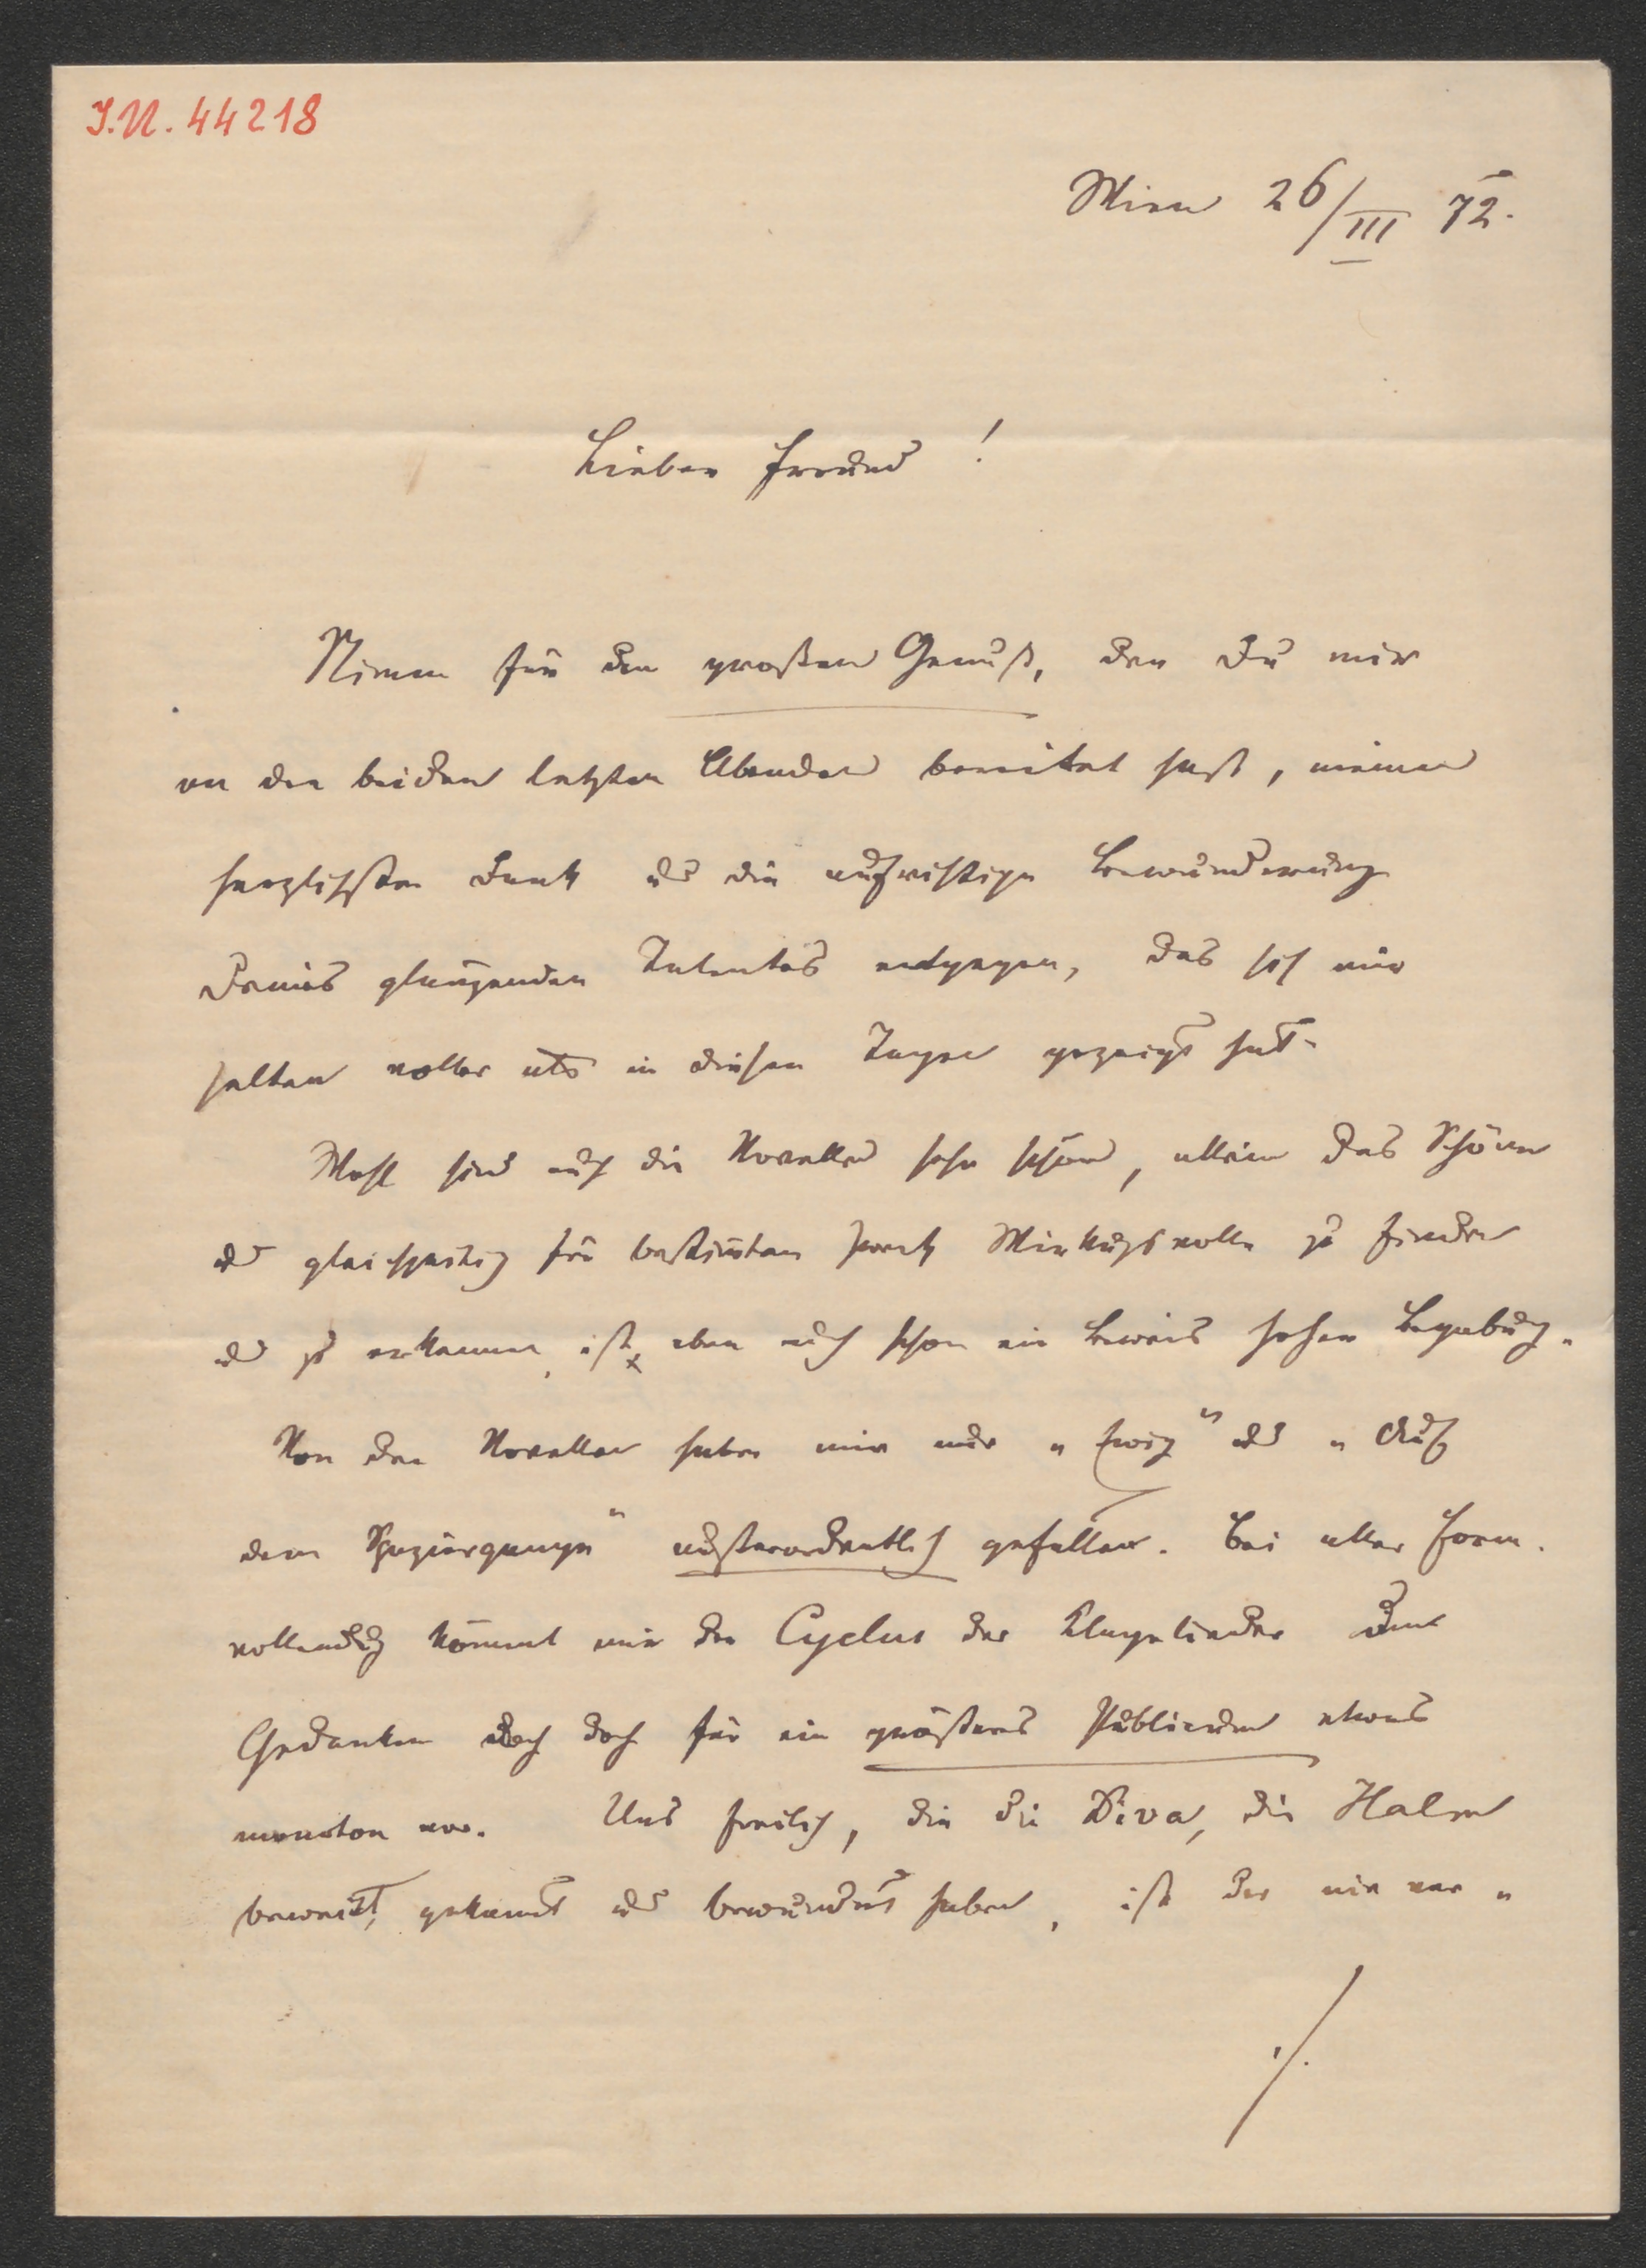 I.N. 44218
Wien 26/III 72.
Lieber Freund!
Nimm für den großen Genuß, den Du mir
an den beiden letzten Abenden bereitet hast, meinen
herzlichsten Dank und die aufrichtige Bewunderung
Deines glänzenden Talentes entgegen, das sich mir
selten voller als in diesen Tagen gezeigt hat.
Wohl sind auch die Novellen sehr schön, allein das Schöne
und gleichzeitig für bestimten Zweck Wirkungsvolle zu finden
und zu erkennen, ist eben auch schon ein Beweis hoher Begabung.
Von den Novellen haben mir nur „Ewig“ und „Auf
dem Spaziergange“ außerordentlich gefallen. Bei aller Form-
vollendung kömmt mir der Cyclus der Klagelieder dem
Gedanken nach doch für ein größeres Publicum etwas
monoton vor. Uns freilich, die die Diva, die Halm
beweint, gekannt und bewundert haben, ist der nie ver-
./.